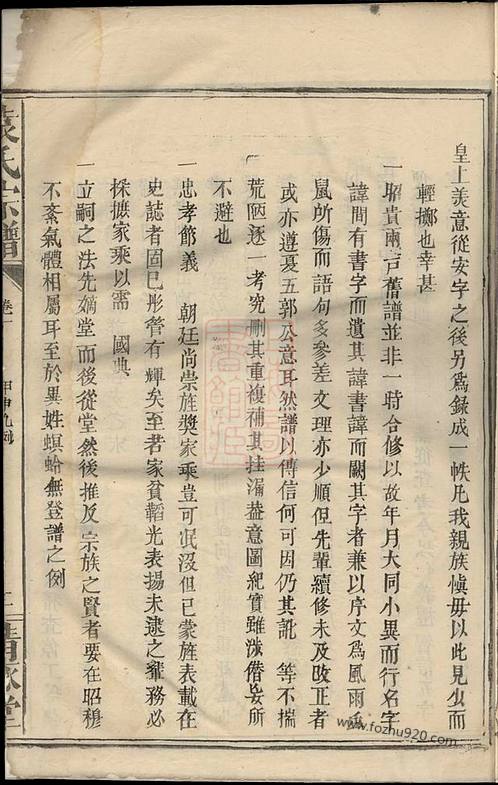 皇上美意從安字之後另爲錄成一帙凡我親族愼毋以此見少而
輕擲也幸甚
一昭貴兩戸舊譜並非一時合修以故年月大同小異而行名字
諱間有書字而遺其諱書諱而闕其字者兼以序文爲風雨
鼠所傷而語句多參差文理亦少順但先輩續修未及改正者
或亦遵夏五郭公意耳然譜以傳信何可因仍其訛 等不揣
荒陋逐一考究刪其重複補其挂漏葢意圖紀實雖涉僭妄所
不避也
一忠孝節義 朝廷尚崇旌奬家乘豈可泯沒但已蒙旌表載在
史誌者固已彤管有輝矣至若家貧韜光表揚未逮之輩務必
採摭家乘以需 國典
一立嗣之法先嫡堂而後從堂然後推及宗族之賢者要在昭穆
不紊氣體相屬耳至於異姓螟蛉無登譜之例
袁氏宗譜
卷一
www.fozhu920.com